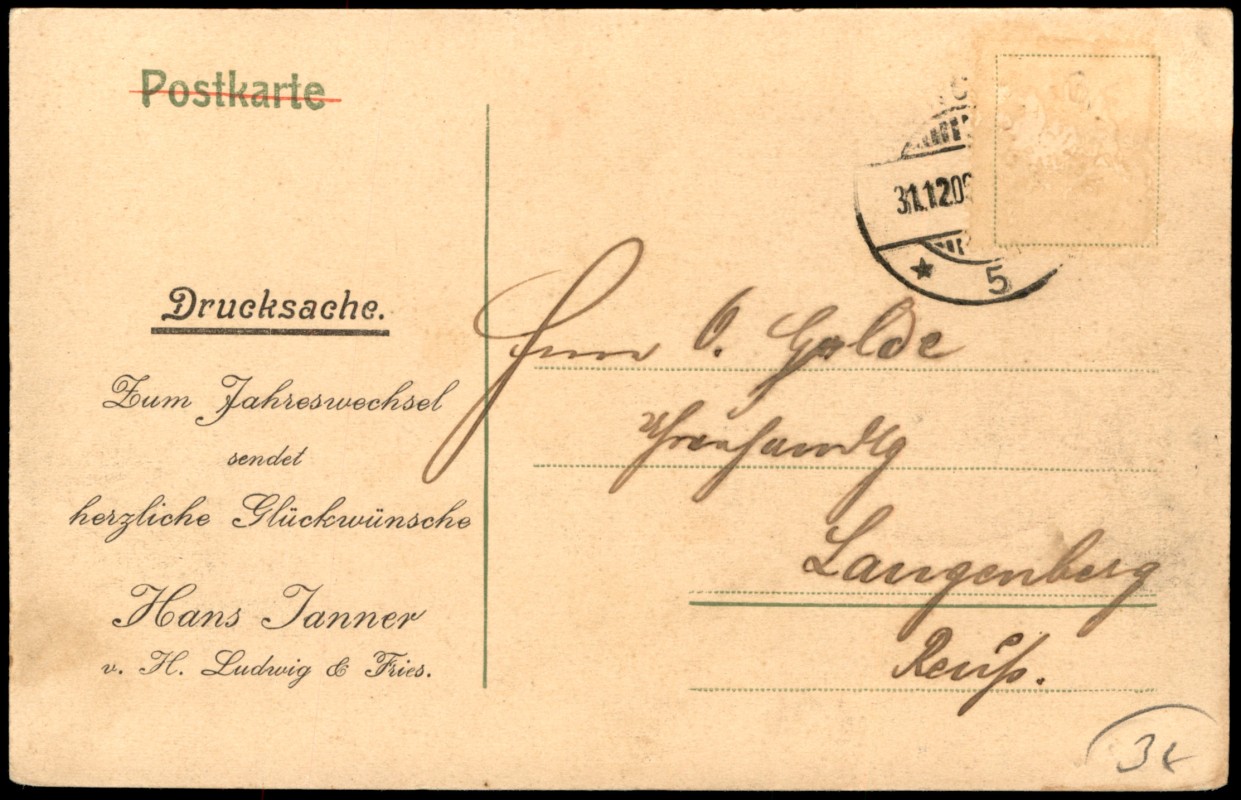 Postkarte
31.12.09
* 5
Drucksache.
Zum Jahreswechsel
sendet
herzliche Glückwünsche
Hans Tanner
v. H. Ludwig & Fries.
Herrn O. Golde
Uhrenhandlg
Langenberg
Reuß.